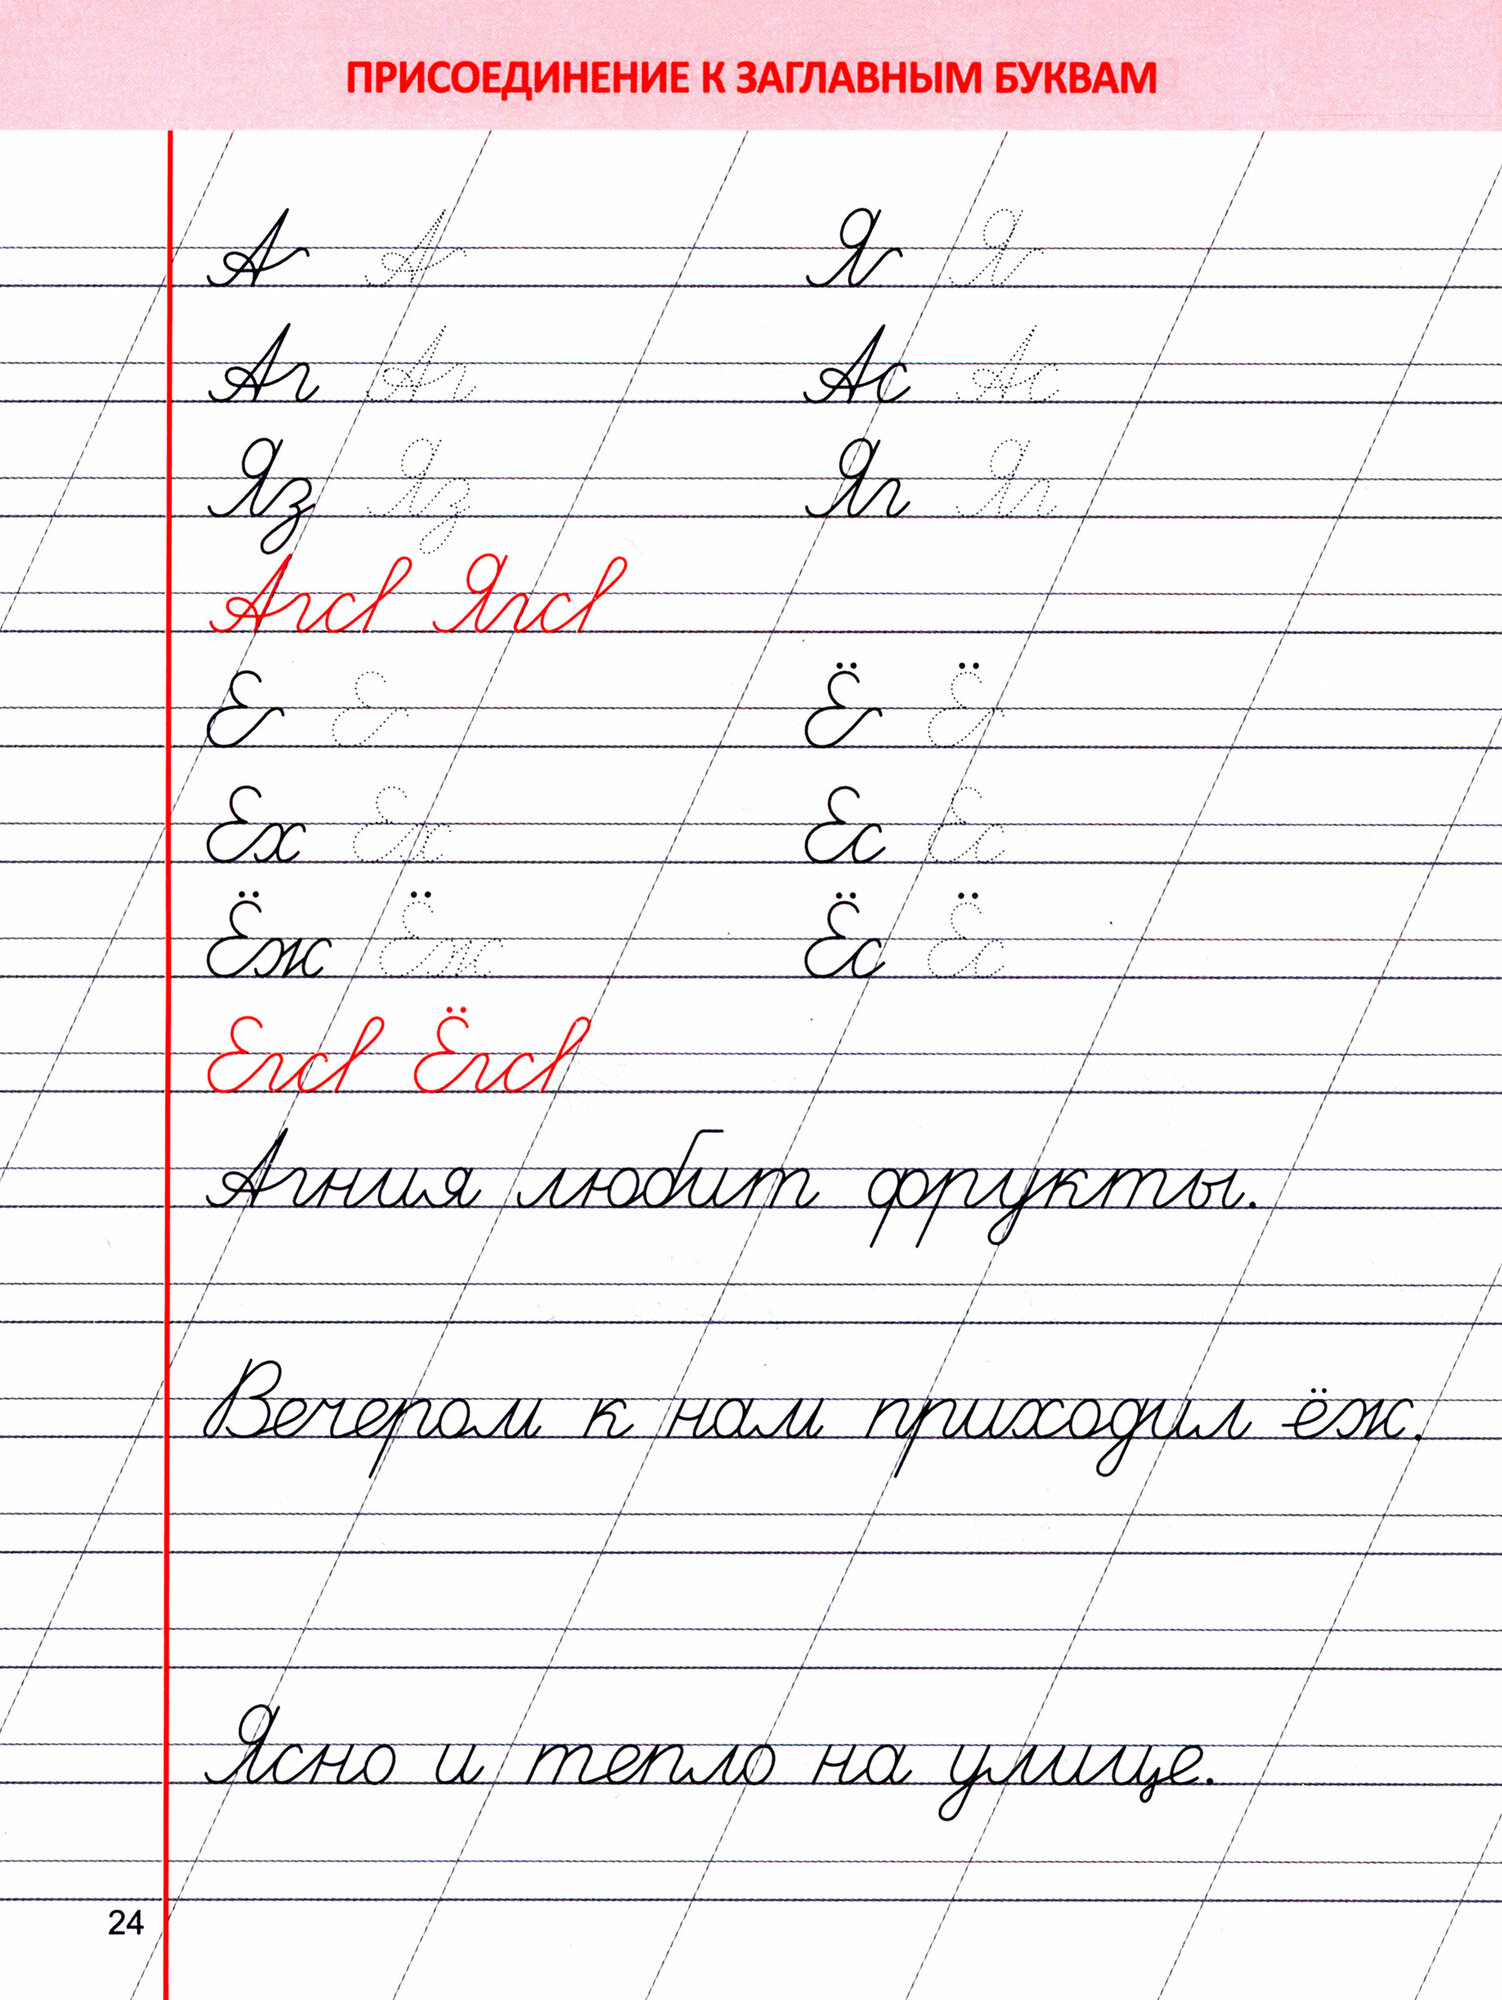 ПРИСОЕДИНЕНИЕ К ЗАГЛАВНЫМ БУКВАМ
А А Я Я
Аг Аг Ас Ас
Яз Яз Яг Яг
Е Е Ё Ё
Ех Ех Ес Ес
Ёж Ёж Ёс Ёс
Агния любит фрукты.
Вечером к нам приходил ёж.
Ясно и тепло на улице.
24